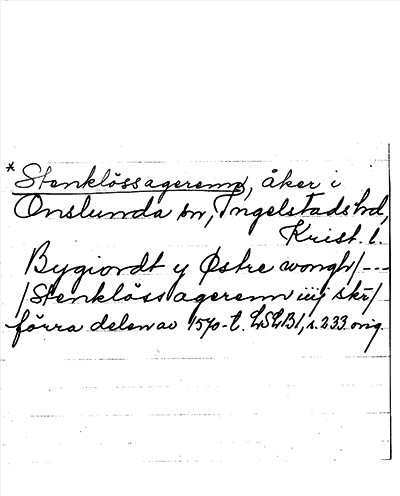 * Stenklössagerenn, åker i
Onslunda sn, Ingelstads hd,
Krist. l.
Bygiordt y Østre wongh/---
/Stenklössagerenn iiij skr/
förra delen av 1570-t. LSLB1, s. 233 orig.